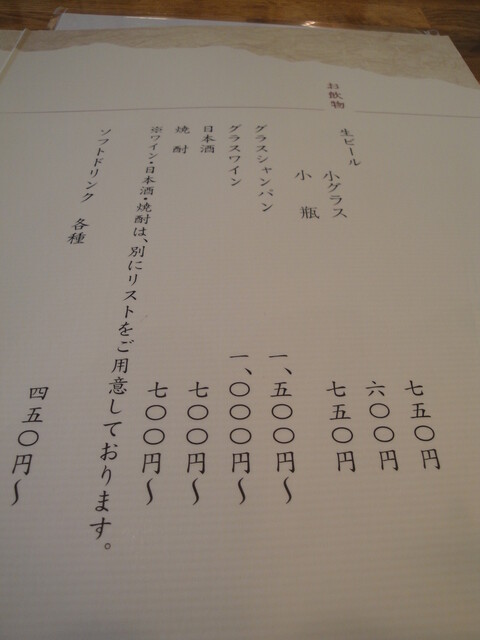 お飲物
生ビール 七五〇円
小グラス 六〇〇円
小 瓶 七五〇円
グラスシャンパン 一、五〇〇円〜
グラスワイン 一、〇〇〇円〜
日本酒 七〇〇円〜
焼 酎 七〇〇円〜
※ワイン・日本酒・焼酎は、別にリストをご用意しております。
ソフトドリンク 各種 四五〇円〜